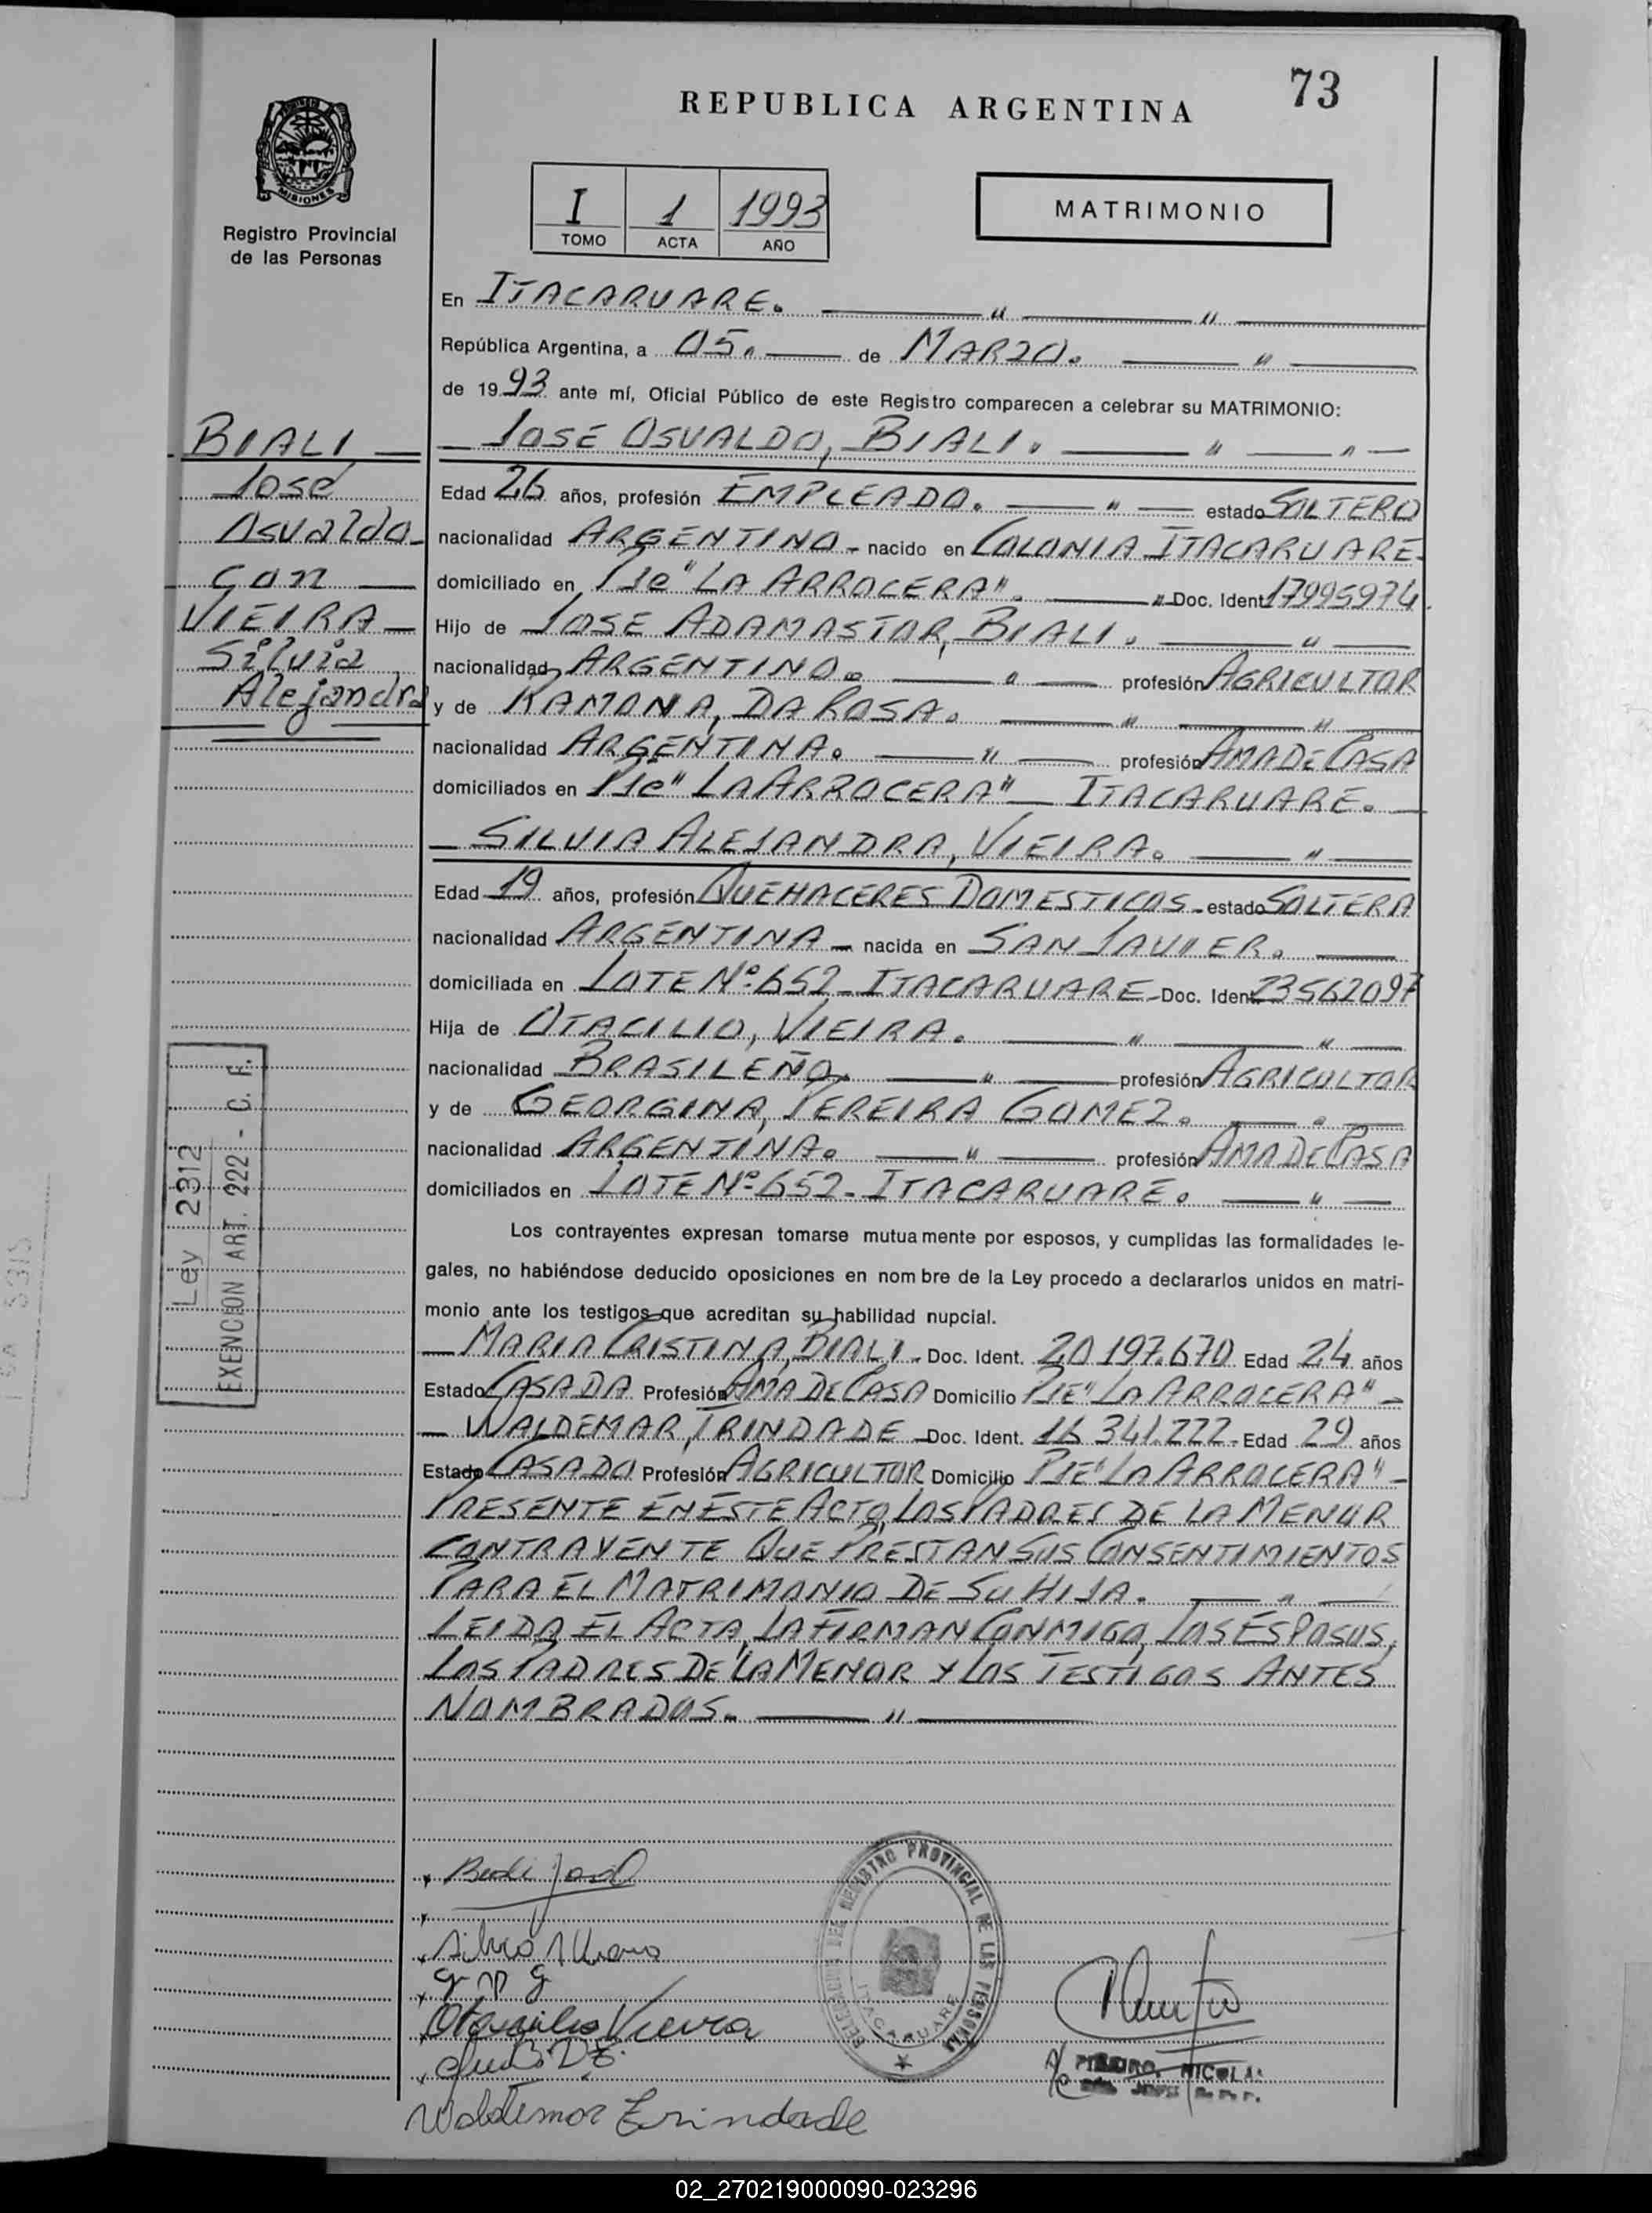 73
REPUBLICA ARGENTINA
MISIONES
Registro Provincial
de las Personas
I 1 1993
TOMO ACTA AÑO
MATRIMONIO
En ITACARUARE.
República Argentina, a 05. de MARZO.
de 1993 ante mí, Oficial Público de este Registro comparecen a celebrar su MATRIMONIO:
BIALI
José
Osvaldo
con
VIEIRA
Silvia
Alejandra
JOSÉ OSVALDO, BIALI.
Edad 26 años, profesión EMPLEADO. estado SOLTERO
nacionalidad ARGENTINO nacido en COLONIA ITACARUARE
domiciliado en Pje "LA ARROCERA". Doc. Ident. 17995974
Hijo de JOSE ADAMASTOR, BIALI.
nacionalidad ARGENTINO. profesión AGRICULTOR
y de RAMONA, DA ROSA.
nacionalidad ARGENTINA. profesión AMA DE CASA
domiciliados en Pje "LA ARROCERA" ITACARUARE.
SILVIA ALEJANDRA, VIEIRA.
Edad 19 años, profesión QUEHACERES DOMESTICOS estado SOLTERA
nacionalidad ARGENTINA nacida en SAN JAVIER.
domiciliada en LOTE Nº 652 ITACARUARE Doc. Ident. 23562097
Hija de OTACILIO, VIEIRA.
nacionalidad BRASILEÑO. profesión AGRICULTOR
y de GEORGINA, PEREIRA GOMEZ.
nacionalidad ARGENTINA. profesión AMA DE CASA
domiciliados en LOTE Nº 652 - ITACARUARE.
Los contrayentes expresan tomarse mutuamente por esposos, y cumplidas las formalidades le-
gales, no habiéndose deducido oposiciones en nombre de la Ley procedo a declararlos unidos en matri-
monio ante los testigos que acreditan su habilidad nupcial.
MARIA CRISTINA, BIALI Doc. Ident. 20 197.670 Edad 24 años
Estado CASADA Profesión AMA DE CASA Domicilio PJE "LA ARROCERA"
WALDEMAR, TRINDADE Doc. Ident. 16 341.222 Edad 29 años
Estado CASADO Profesión AGRICULTOR Domicilio PJE "LA ARROCERA"
PRESENTE EN ESTE ACTO, LOS PADRES DE LA MENOR
CONTRAYENTE QUE PRESTAN SUS CONSENTIMIENTOS
PARA EL MATRIMONIO DE SU HIJA.
LEIDA EL ACTA, LA FIRMAN CONMIGO, LOS ESPOSOS,
LOS PADRES DE LA MENOR Y LOS TESTIGOS ANTES
NOMBRADOS.
Ley 2312
EXENCION ART. 222 - C. F.
Biali José
G P G
Otacilio Vieira
REGISTRO PROVINCIAL DE LAS PERSONAS
ITACARUARE
Waldemar Trindade
02_270219000090-023296